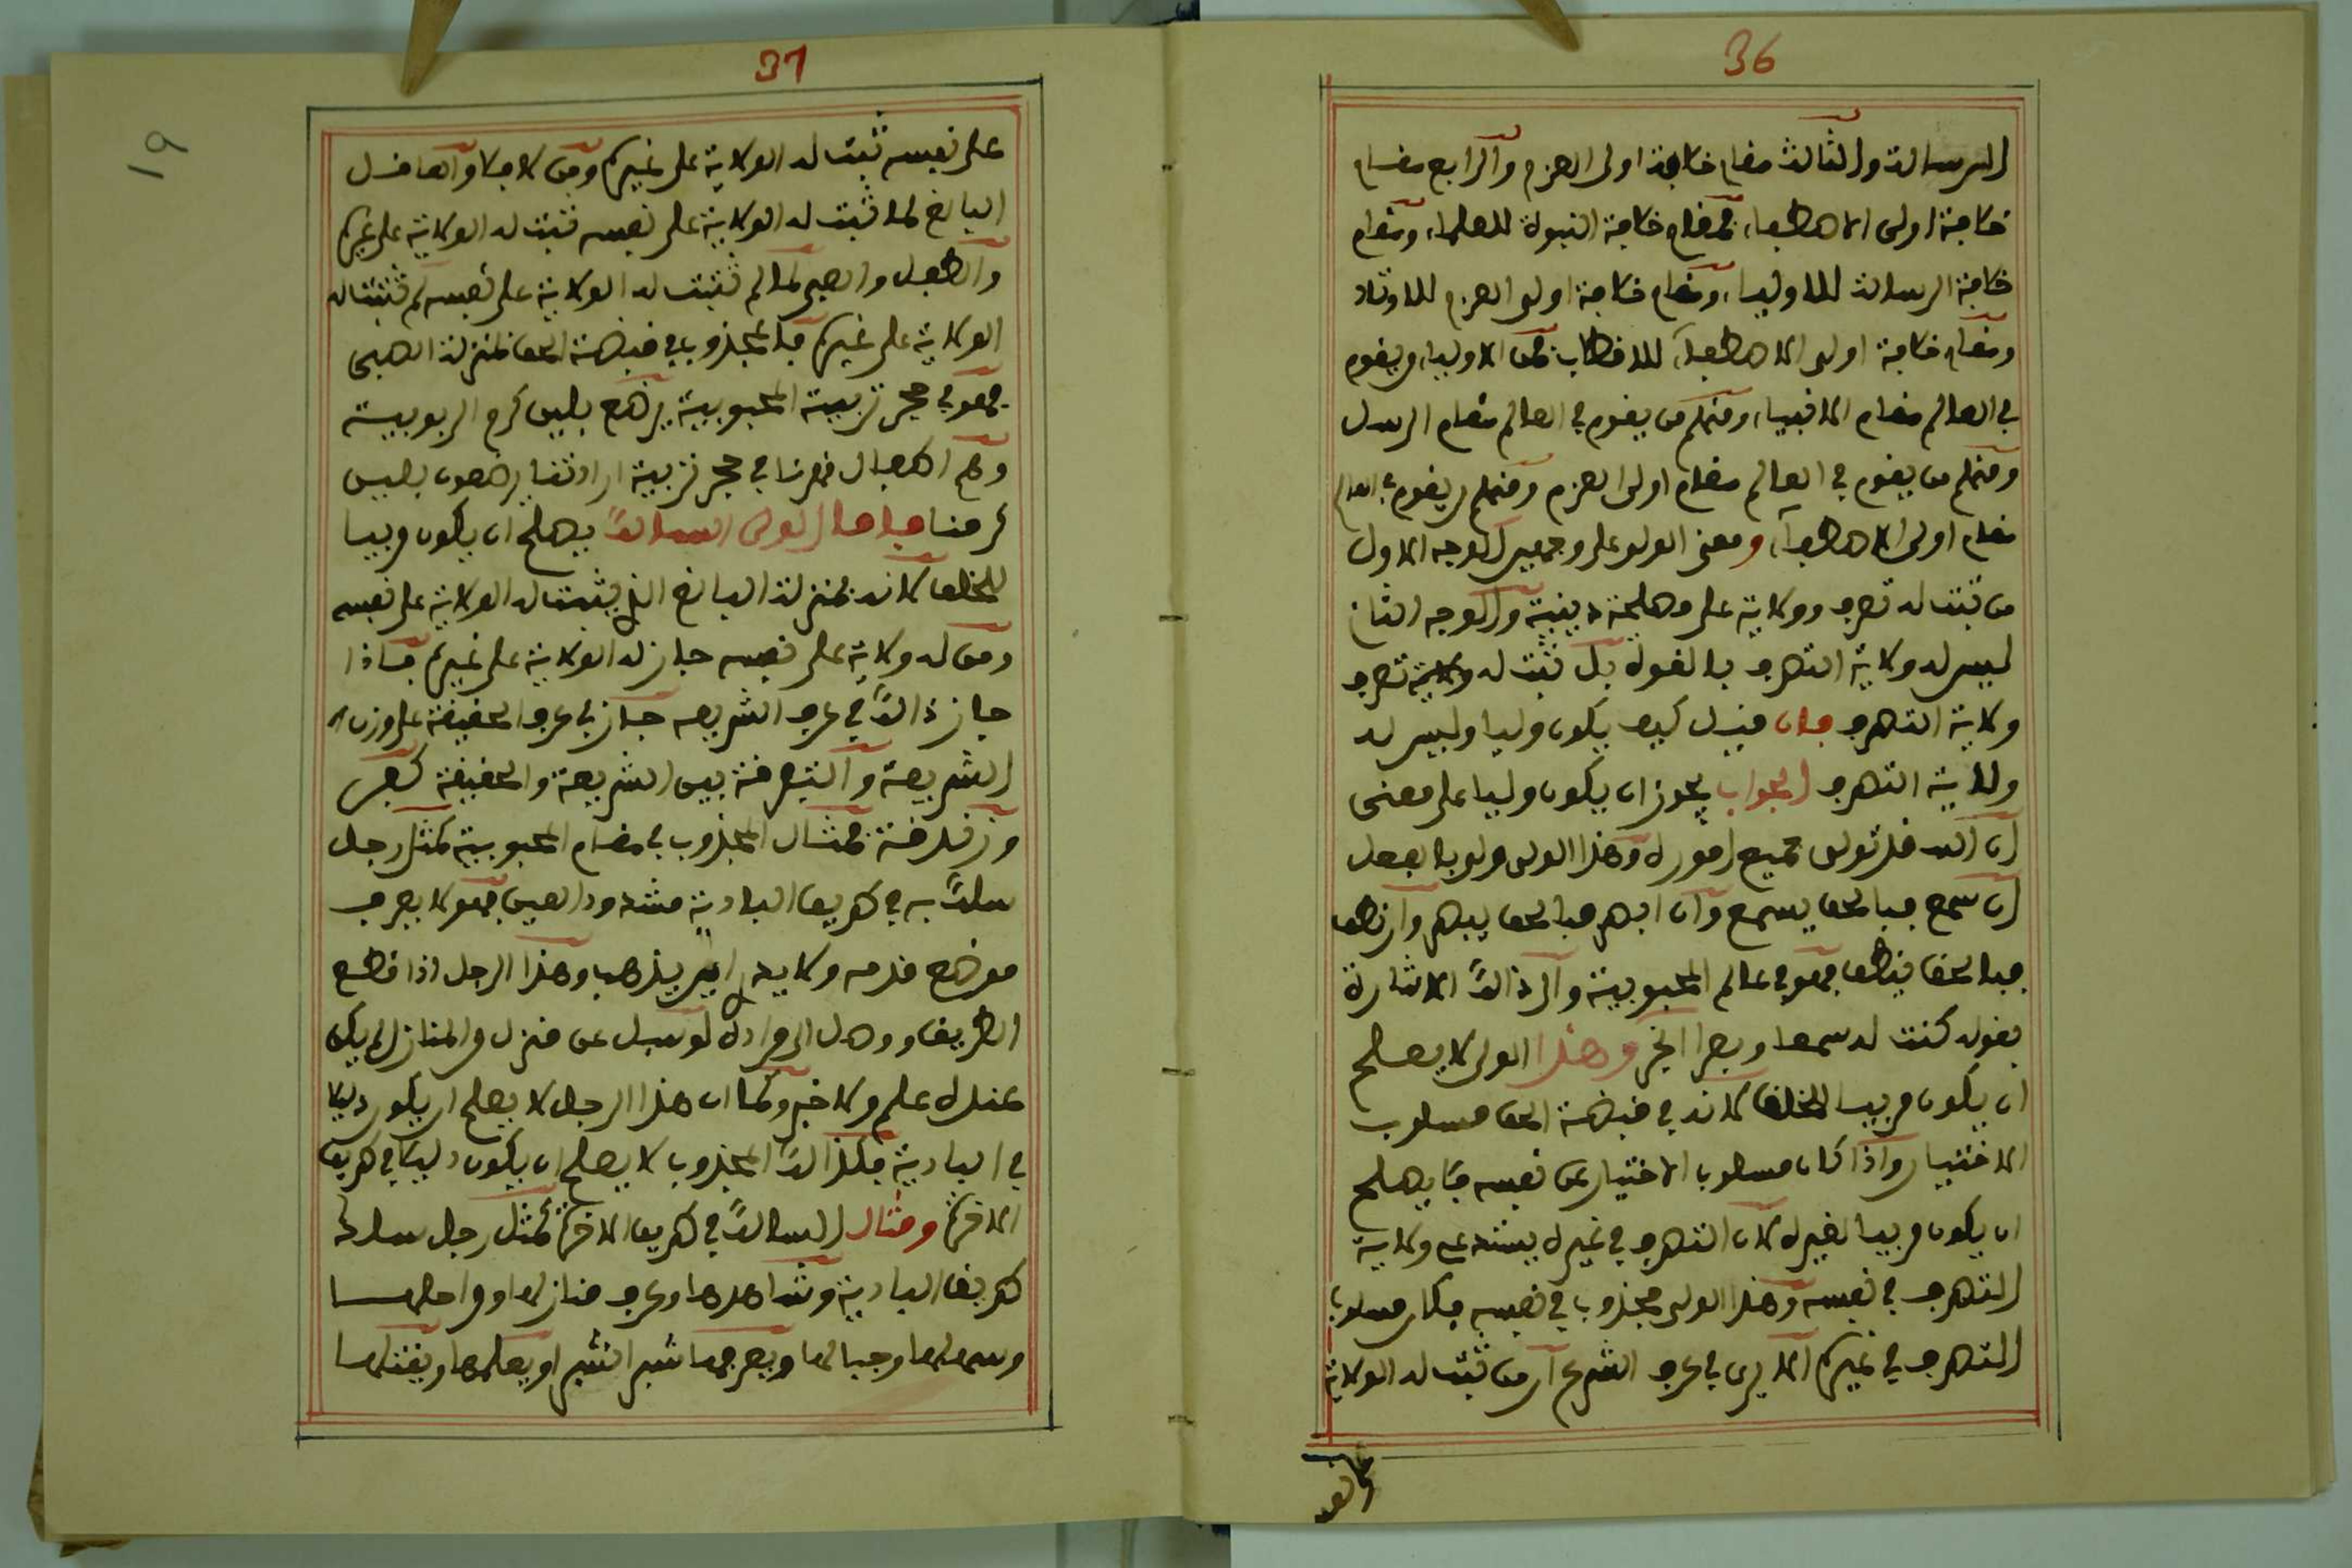 36
الرسالة والثالث مقام خلافة اولى العزم والرابع مقام
خلافة اولى الاصطفاء فمقام خلافة النبوة للعلماء ومقام
خلافة الرسالة للاولياء ومقام خلافة اولو العزم للاوتاد
ومقام خلافة اولى الاصطفاء للاقطاب فمن الاولياء من يقوم
في العالم مقام الانبياء ومنهم من يقوم في العالم مقام الرسل
ومنهم من يقوم في العالم مقام اولى العزم ومنهم من يقوم في العالم
مقام اولى الاصطفاء ومعنى الولى على وجهين الوجه الاول
من ثبت له تصرف وولاية على مصلحة دينية والوجه الثاني
ليس له ولاية التصرف بالقول بل ثبت له ولاية تصرف
ولاية التصرف فان قيل كيف يكون وليا وليس له
ولاية التصرف الجواب يجوز ان يكون وليا على معنى
ان الله قد تولى جميع اموره وهذا الولى ولى بالفعل
ان سمع فبالحق يسمع وان ابصر فبالحق يبصر وان نطق
فبالحق ينطق فهو في عالم المحبوبية والى ذالك الاشارة
بقوله كنت له سمعا وبصرا الخبر وهذا الولى لا يصلح
ان يكون مربيا للخلق لانه في قبضة الحق مسلوب
الاختيار واذا كان مسلوب الاختيار عن نفسه فلا يصلح
ان يكون مربيا لغيره لان التصرف في غيره يستدعى ولاية
التصرف في نفسه وهذا الولى مجذوب في نفسه فكان مسلوب
التصرف في غيره الا يرى في عرف الشرع ان من ثبت له الولاية
على نفسه
37
19
على نفسه ثبت له الولاية على غيره ومن لا فلا والعاقل
البالغ لما ثبت له الولاية على نفسه ثبت له الولاية على غيره
والطفل والصبى لما لم تثبت له الولاية على نفسه لم تثبت له
الولاية على غيره فالمجذوب في قبضة الحق بمنزلة الصبى
فهو في حجر تربية المحبوبية يرضع بلبن كرم الربوبية
وهم اطفال في حجر تربية ارادتنا يرضعون بلبن
كرمنا فاما الولى السالك يصلح ان يكون مربيا
للخلق لانه بمنزلة البالغ الذى يثبت له الولاية على نفسه
ومن له ولاية على نفسه جاز له الولاية على غيره فاذا
جاز ذالك في عرف الشريعه جاز في عرف الحقيقة على وزان
الشريعة والتفرقة بين الشريعة والحقيقة كفر
وزندقة فمثال المجذوب في مقام المحبوبية كمثل رجل
سلك به في طريق البادية مشدود العين فهو لا يعرف
موضع قدمه ولا يدرى اين يذهب وهذا الرجل اذا قطع
الطريق ووصل الى مراده لو سئل عن منزل من المنازل لم يكن
عنده علم ولا خبر وكما ان هذا الرجل لا يصلح ان يكون دليلا
في البادية فكذالك المجذوب لا يصلح ان يكون دليلا في طريق
الاخرة ومثال السالك في طريق الاخرة كمثل رجل سلك
طريق البادية وشاهدها وعرف منازلها ومراحلها
وسهلها وجبالها ويعرفها شبرا شبرا ويعلمها ويقتلها